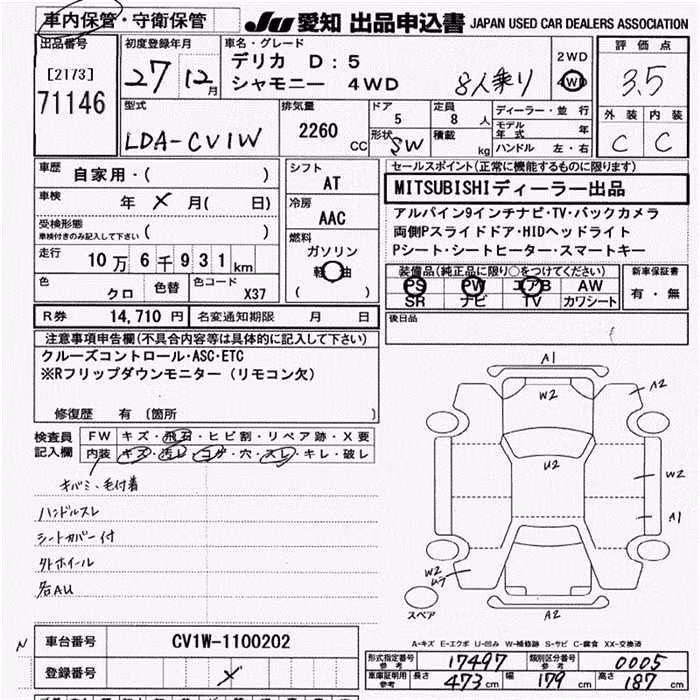 車内保管・守衛保管
JU 愛知 出品申込書 JAPAN USED CAR DEALERS ASSOCIATION
出品番号
[2173]
71146
初度登録年月
27 12月
車名・グレード
デリカ D:5
シャモニー 4WD 8人乗り
2WD
4WD
評価点
3.5
外装 内装
C C
型式
LDA-CV1W
排気量
2260 CC
ドア
5
形状 SW
定員
8 人
積載 kg
ディーラー・並行
モデル年式 年
ハンドル 左・右
車歴
自家用・( )
車検
年 X 月( 日)
受検形態
車検付きのみ記入して下さい ( )
走行
10万6千931km
色
クロ
色替
色コード
X37
シフト
AT
冷房
AAC
燃料
ガソリン
軽油
( )
R券 14,710円 名変通知期限 月 日
セールスポイント(正常に機能するものに限ります)
MITSUBISHIディーラー出品
アルパイン9インチナビ・TV・バックカメラ
両側Pスライドドア・HIDヘッドライト
Pシート・シートヒーター・スマートキー
装備品(純正品に限り○をつけてください)
PS PW エアB AW
SR ナビ TV カワシート
新車保証書
有・無
後日品
注意事項申告欄(不具合内容等は具体的に記入して下さい)
クルーズコントロール・ASC・ETC
※Rフリップダウンモニター(リモコン欠)
修復歴 有〔箇所 〕
検査員記入欄
FW キズ・飛石・ヒビ割・リペア跡・X要
内装 キズ・汚レ・コゲ・穴・スレ・キレ・破レ
キバミ・毛付着
ハンドルスレ
シートカバー付
外ホイール
名AU
A1
W2
A2
U2
W2
A1
W2
U7
A2
スペア
A-キズ E-エクボ U-凹み W-補修跡 S-サビ C-腐食 XX-交換済
N
車台番号 CV1W-1100202
登録番号 X
形式指定番号 参考 17497 類別区分番号 参考 0005
車庫証明用 参考 長さ 473cm 幅 179cm 高さ 187cm